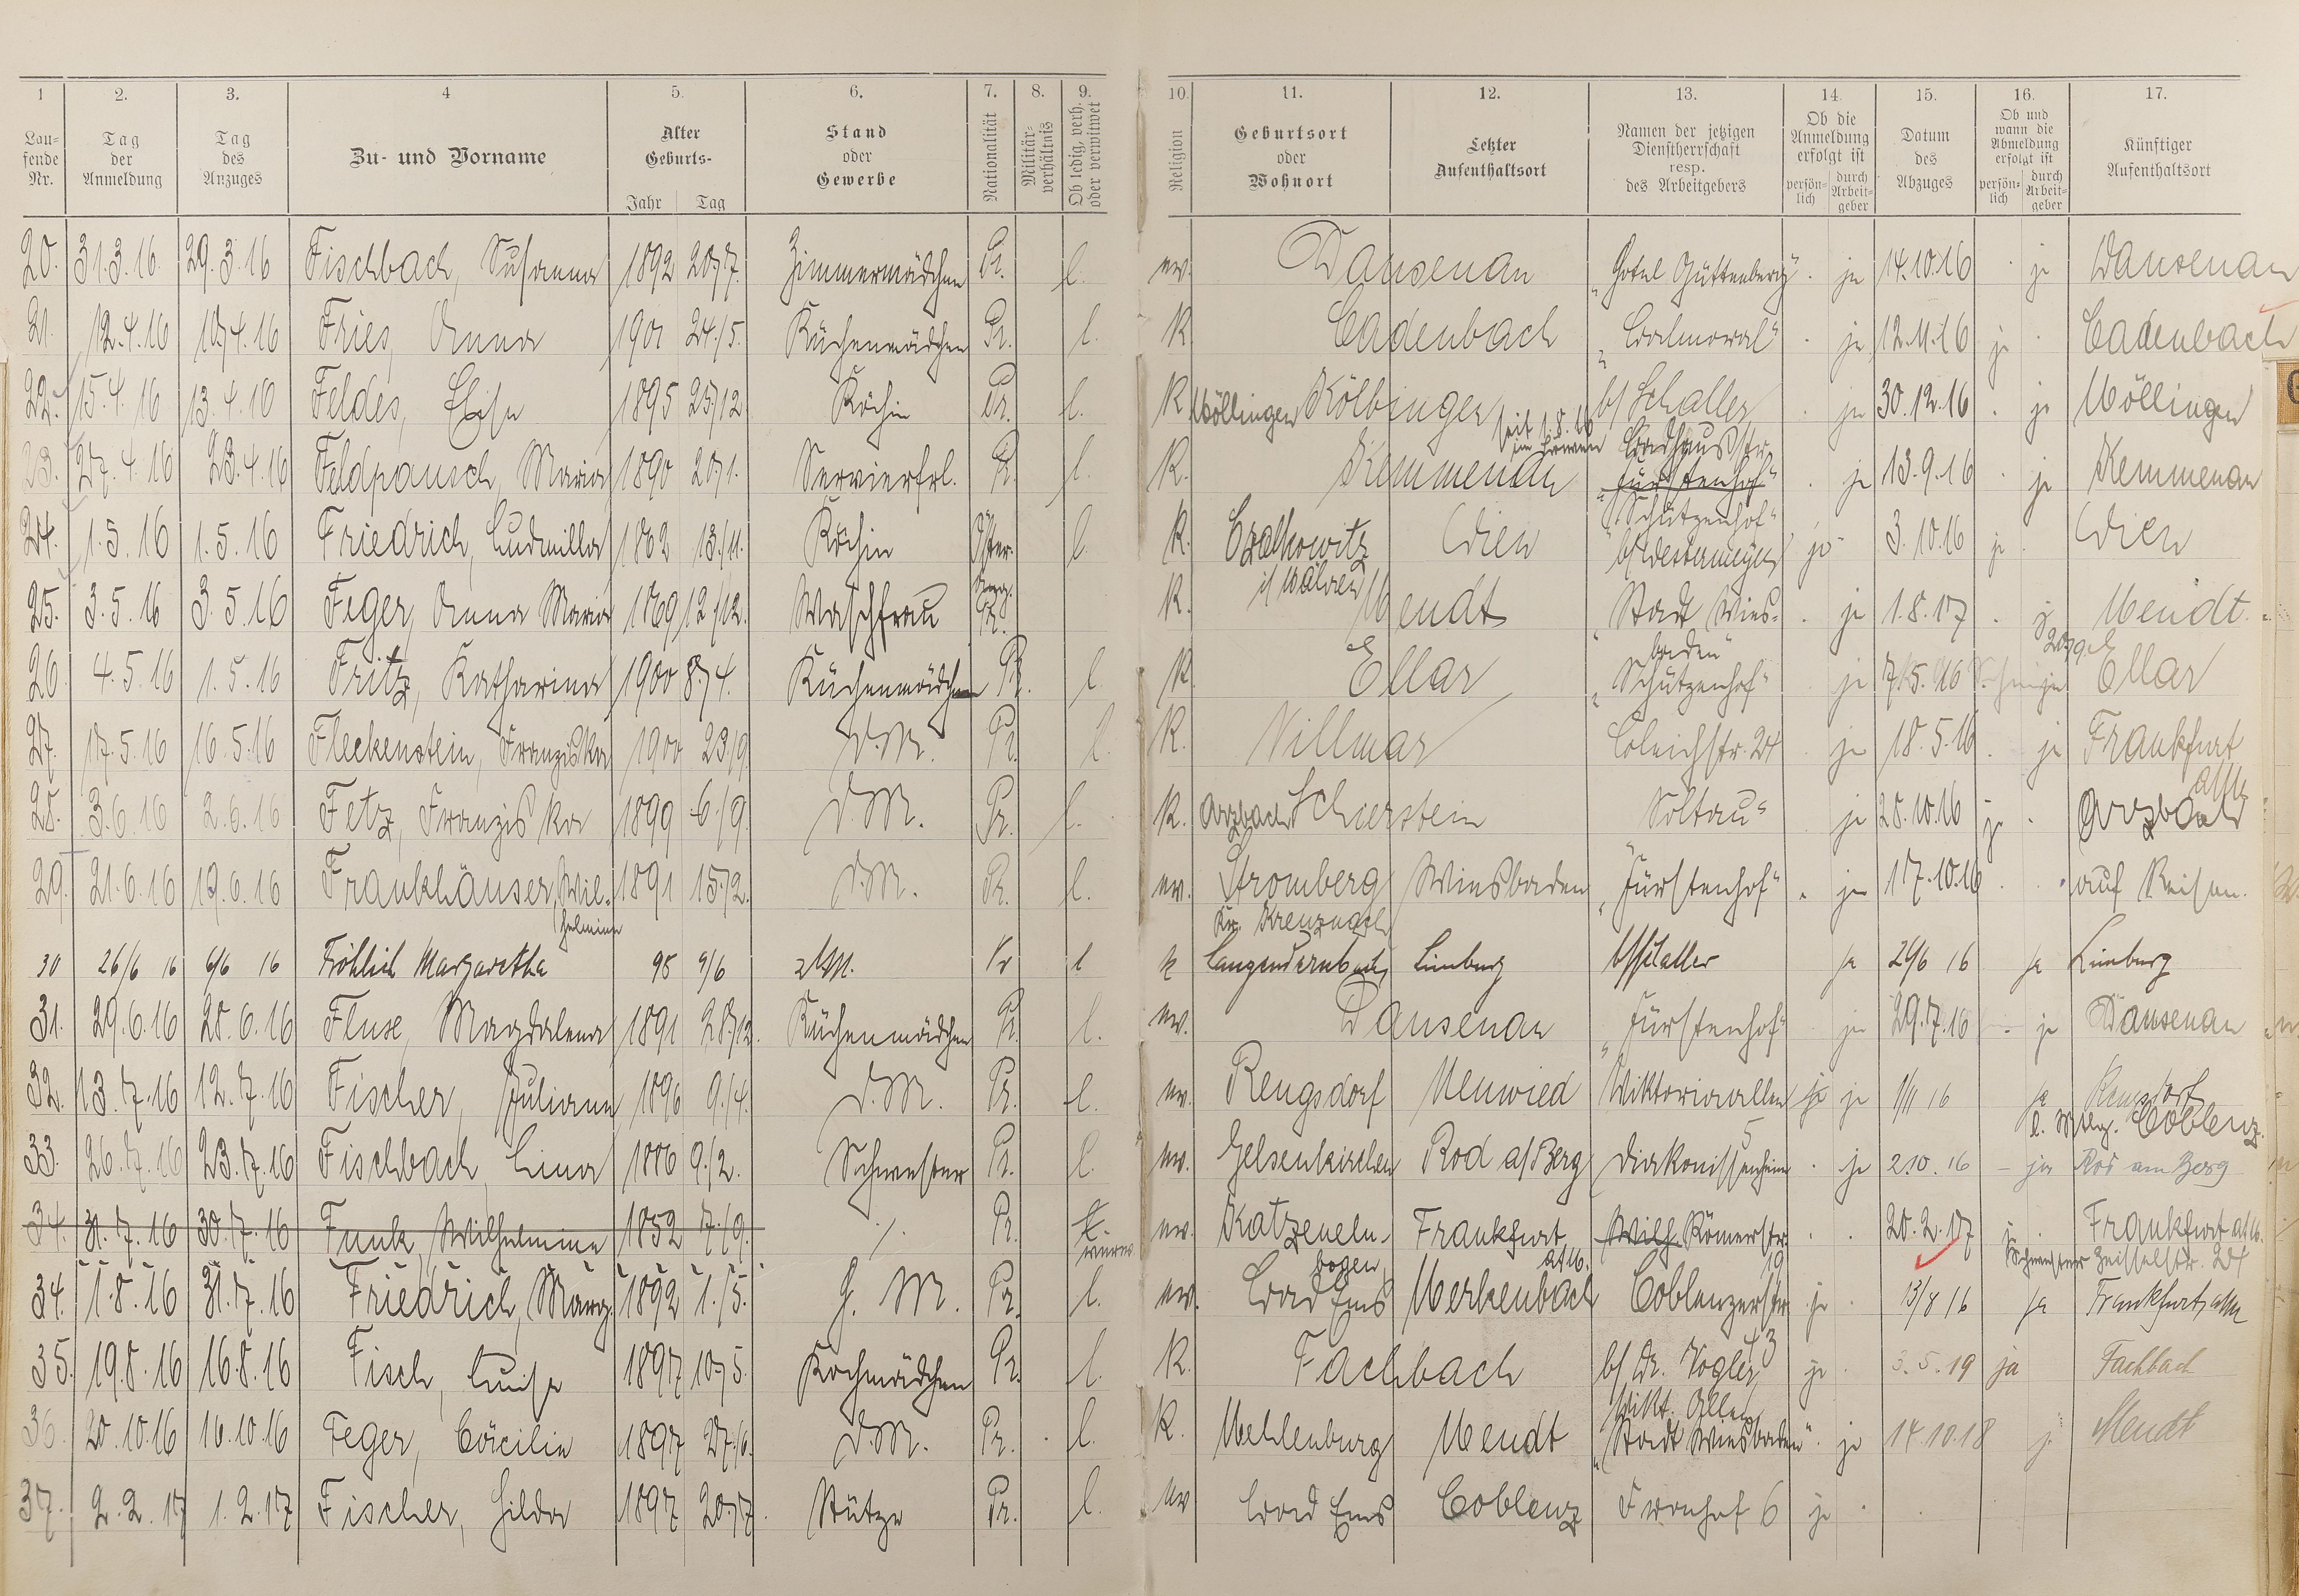 1 2. 3. 4 5. 6. 7. 8. 9. 10. 11. 12. 13. 14. 15. 16. 17.
Lau-fende Nr. Tag der Anmeldung Tag des Anzuges Zu- und Vorname Alter Geburts- Jahr Tag Stand oder Gewerbe Nationalität Militär-verhältnis Ob ledig, verh. oder verwitwet Religion Geburtsort oder Wohnort Letzter Aufenthaltsort Namen der jetzigen Dienstherrschaft resp. des Arbeitgebers Ob die Anmeldung erfolgt ist persön-lich durch Arbeit-geber Datum des Abzuges Ob und wann die Abmeldung erfolgt ist persön-lich durch Arbeit-geber Künftiger Aufenthaltsort
20. 31.3.16 29.3.16 Fischbach, Susanna 1892 20./7. Zimmermädchen Pr. l. ev. Dausenau "Hotel Guttenberg" . ja 14.10.16 . ja Dausenau
21. 12.4.16 10.4.16 Fries, Anna 1901 24./5. Küchenmädchen Pr. l. K. Cadenbach "Balmoral" . ja 12.11.16 ja . Cadenbach
22. 15.4.16 13.4.16 Feldes, Elise 1895 25./12. Köchin Pr. l. K. Möllingen Kölbingen b/ Schaller . ja 30.12.16 . ja Möllingen
seit 1.8.16 im Löwen Badhausstr.
23. 27.4.16 23.4.16 Feldpausch, Maria 1890 20./1. Servierfrl. Pr. l. K. Kemmenau "Fürstenhof" . ja 13.9.16 . ja Kemmenau
"Schützenhof"
24. 1.5.16 1.5.16 Friedrich, Ludmilla 1862 13./11. Köchin Öster. l. K. Czalkowitz Wien b/ Westermeyer ja 3.10.16 ja . Wien
i/ Mähren
25. 3.5.16 3.5.16 Feger, Anna Maria 1869 12./12. Waschfrau Pr. K. Meudt "Stadt Wies- . ja 1.8.17 . ja Meudt
baden"
26. 4.5.16 1.5.16 Fritz, Katharina 1900 8./4. Küchenmädchen Pr. l. K. Ellar "Schützenhof" ja ja Ellar
27. 17.5.16 16.5.16 Fleckenstein, Franziska 1900 23/9. D.M. Pr. l. K. Villmar Bleichstr. 24 . ja 18.5.16 . ja Frankfurt
a/M
28. 3.6.16 2.6.16 Fetz, Franziska 1899 6./9. D.M. Pr. l. K. Arzbach Schierstein "Soltau" ja 28.10.16 ja . Arzbach
29. 21.6.16 19.6.16 Frankhäuser, Wil- 1891 15./2. D.M. Pr. l. ev. Stromberg Wiesbaden "Fürstenhof" . ja 17.10.16 . . auf Reisen.
helmine Kr. Kreuznach
30 26/6 16 6/6 16 Fröhlich Margaretha 98 9/6 Pr l k Langendernbach Limburg b/ Schaller ja 29/6 16 ja Limburg
31. 29.6.16 28.6.16 Fluse, Magdalena 1891 28./12. Küchenmädchen Pr. l. ev. Dausenau "Fürstenhof" ja 29.7.16 - ja Dausenau
32. 13.7.16 12.7.16 Fischer, Juliane 1896 9./4. D.M. Pr. l. ev. Rengsdorf Neuwied Viktoriaallee ja ja 1/11 16 ja Rengsdorf
5 Coblenz.
33. 26.7.16 23.7.16 Fischbach, Lina 1886 9./2. Schwester Pr. l. ev. Gelsenkirchen Rod a/Berg Diakonissenheim . ja 2.10.16 - ja Rod am Berg
34. 31.7.16 30.7.16 Funk, Wilhelmine 1852 7./9. / Pr. ev. Katzeneln- Frankfurt Wilh. Römerstr. . . 20.2.17 . Frankfurt a/M.
verw. bogen a/M. 19 Schwester Zeisselstr. 24
34. 1.8.16 31.7.16 Friedrich, Marg. 1892 1./5. H.M. Pr. l. ev. Bad Ems Merkenbach Coblenzerstr. ja . 13/8 16 ja Frankfurt a/M
43
35. 19.8.16 16.8.16 Fisch, Luise 1897 10./5. Kochmädchen Pr. l. K. Fachbach b/ Dr. Vogler, ja . 3.5.19 ja Fachbach
Vikt. Allee
36. 20.10.16 16.10.16 Feger, Cäcilie 1897 27./6. D.M. Pr. . l. K. Mehlenburg Meudt "Stadt Wiesbaden" . ja 14.10.18 ja Meudt
37. 2.2.17 1.2.17 Fischer, Hilda 1897 20./7. Stütze Pr. l. ev Bad Ems Coblenz Fronhof 6 ja .